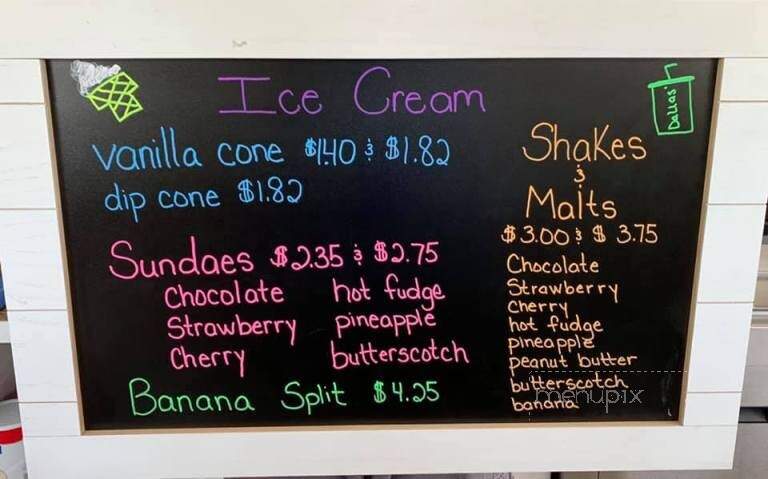 Ice Cream
Dallas'
vanilla cone $1.40 & $1.82
dip cone $1.82
Sundaes $2.35 & $2.75
Chocolate hot fudge
Strawberry pineapple
Cherry butterscotch
Banana Split $4.25
Shakes
&
Malts
$3.00 & $3.75
Chocolate
Strawberry
Cherry
hot fudge
pineapple
peanut butter
butterscotch
banana
menupix